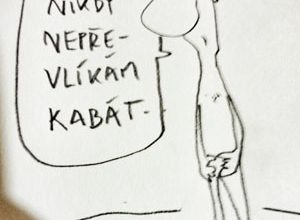 NIKDY
NEPŘE-
VLÍKÁM
KABÁT.